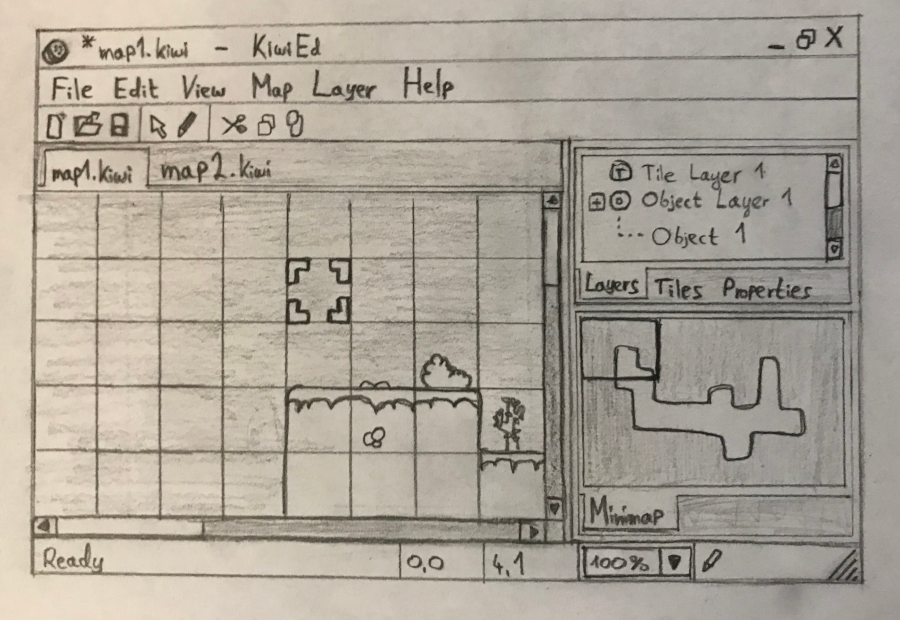 *map1.kiwi - KiwiEd
File Edit View Map Layer Help
map1.kiwi map2.kiwi
T Tile Layer 1
Object Layer 1
Object 1
Layers Tiles Properties
Minimap
Ready 0,0 4,1 100%